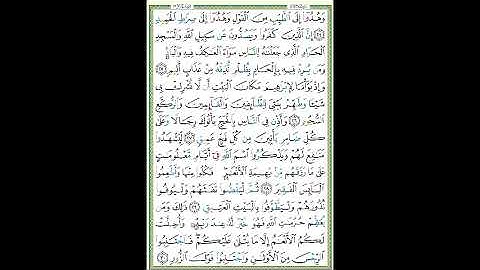 وَهُدُوٓا۟ إِلَى ٱلطَّيِّبِ مِنَ ٱلْقَوْلِ وَهُدُوٓا۟ إِلَىٰ صِرَٰطِ ٱلْحَمِيدِ
٢٤ إِنَّ ٱلَّذِينَ كَفَرُوا۟ وَيَصُدُّونَ عَن سَبِيلِ ٱللَّهِ وَٱلْمَسْجِدِ
ٱلْحَرَامِ ٱلَّذِى جَعَلْنَٰهُ لِلنَّاسِ سَوَآءً ٱلْعَٰكِفُ فِيهِ وَٱلْبَادِ
وَمَن يُرِدْ فِيهِ بِإِلْحَادٍۭ بِظُلْمٍ نُّذِقْهُ مِنْ عَذَابٍ أَلِيمٍ ٢٥
وَإِذْ بَوَّأْنَا لِإِبْرَٰهِيمَ مَكَانَ ٱلْبَيْتِ أَن لَّا تُشْرِكْ بِى
شَيْـًٔا وَطَهِّرْ بَيْتِىَ لِلطَّآئِفِينَ وَٱلْقَآئِمِينَ وَٱلرُّكَّعِ
ٱلسُّجُودِ ٢٦ وَأَذِّن فِى ٱلنَّاسِ بِٱلْحَجِّ يَأْتُوكَ رِجَالًا وَعَلَىٰ
كُلِّ ضَامِرٍ يَأْتِينَ مِن كُلِّ فَجٍّ عَمِيقٍ ٢٧ لِّيَشْهَدُوا۟
مَنَٰفِعَ لَهُمْ وَيَذْكُرُوا۟ ٱسْمَ ٱللَّهِ فِىٓ أَيَّامٍ مَّعْلُومَٰتٍ
عَلَىٰ مَا رَزَقَهُم مِّنۢ بَهِيمَةِ ٱلْأَنْعَٰمِ فَكُلُوا۟ مِنْهَا وَأَطْعِمُوا۟
ٱلْبَآئِسَ ٱلْفَقِيرَ ٢٨ ثُمَّ لْيَقْضُوا۟ تَفَثَهُمْ وَلْيُوفُوا۟
نُذُورَهُمْ وَلْيَطَّوَّفُوا۟ بِٱلْبَيْتِ ٱلْعَتِيقِ ٢٩ ذَٰلِكَ وَمَن
يُعَظِّمْ حُرُمَٰتِ ٱللَّهِ فَهُوَ خَيْرٌ لَّهُۥ عِندَ رَبِّهِۦ وَأُحِلَّتْ
لَكُمُ ٱلْأَنْعَٰمُ إِلَّا مَا يُتْلَىٰ عَلَيْكُمْ فَٱجْتَنِبُوا۟
ٱلرِّجْسَ مِنَ ٱلْأَوْثَٰنِ وَٱجْتَنِبُوا۟ قَوْلَ ٱلزُّورِ ٣٠